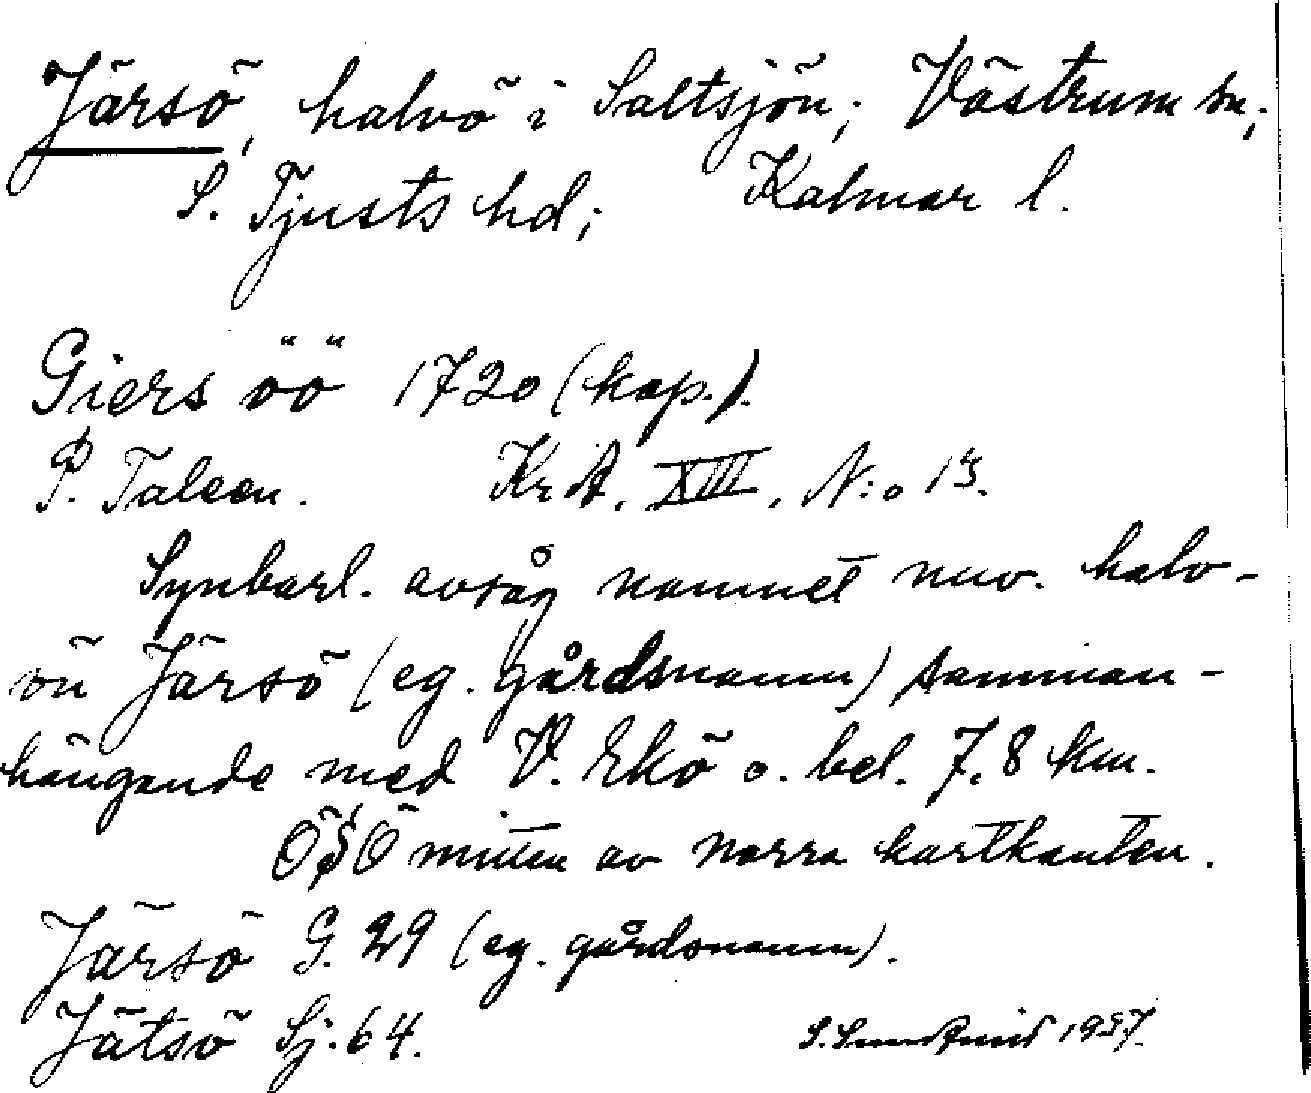 Järsö, halvö i Saltsjön; Västrum sn;
S. Tjusts hd; Kalmar l.
Giers öö 1720 (kop.).
P. Taleen. Kr A. XIII, N:o 13.
Synbarl. avsåg namnet nuv. halv-
ön Järsö (eg. gårdsnamn) samman-
hängende med V. Ekö o. bel. 7,8 km.
ÖSÖ mitten av norra kartkanten.
Järsö G. 29 (eg. gårdsnamn).
Jätsö Sj. 64. S. 1937.